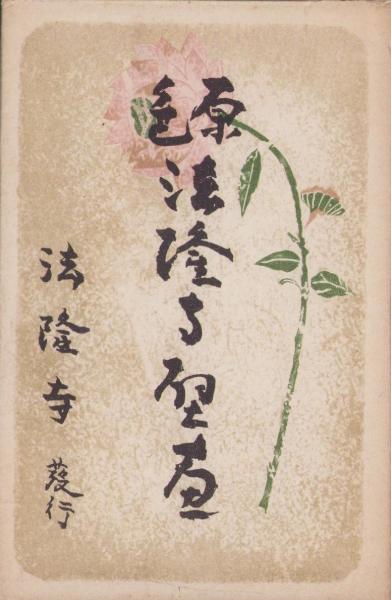 原色
法隆寺壁画
法隆寺 發行